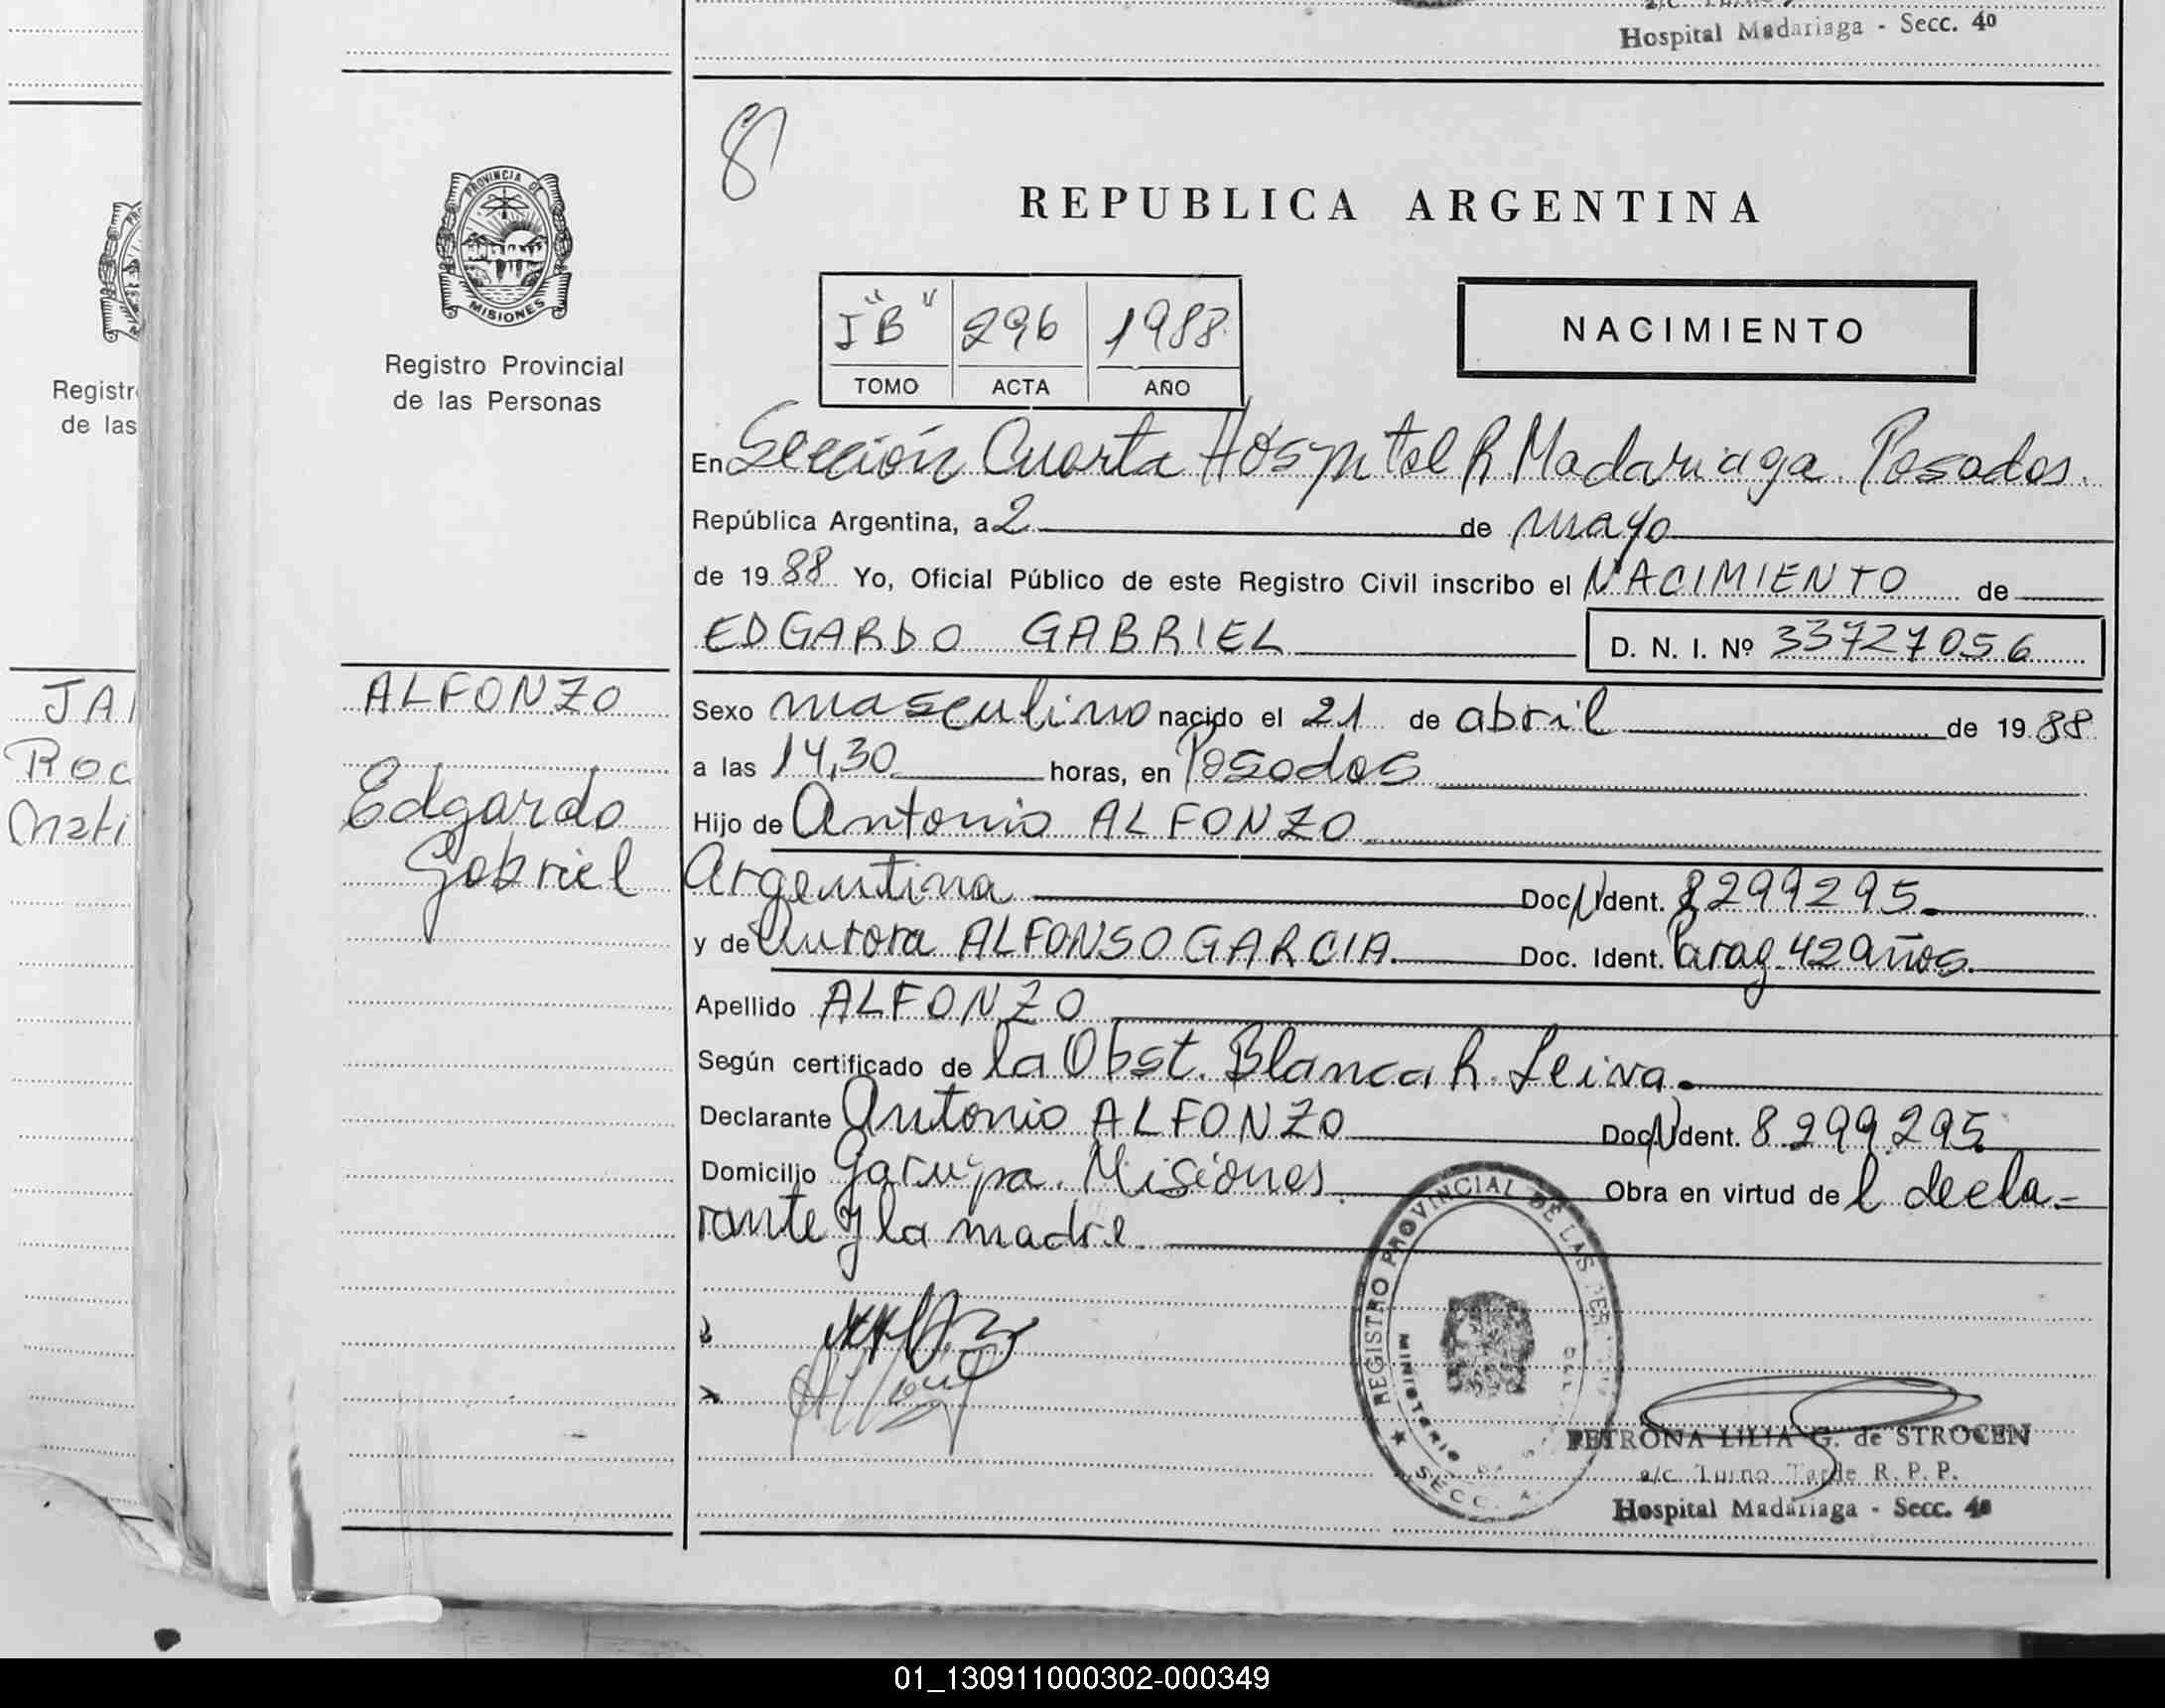 Hospital Madariaga - Secc. 40
8
PROVINCIA DE
MISIONES
Registro Provincial
de las Personas
REPUBLICA ARGENTINA
I "B" 296 1988
TOMO ACTA AÑO
NACIMIENTO
En Sección Cuarta Hospital R. Madariaga. Posadas.
República Argentina, a 2 de mayo
de 1988 Yo, Oficial Público de este Registro Civil inscribo el NACIMIENTO de
EDGARDO GABRIEL D. N. I. Nº 33727056
Registr
de las
JA
Roc
Mati
ALFONZO
Edgardo
Gabriel
Sexo masculino nacido el 21 de abril de 1988
a las 14,30 horas, en Posadas
Hijo de Antonio ALFONZO
Argentina Doc. Ident. 8299295.
y de Aurora ALFONSO GARCIA. Doc. Ident. Parag. 42 años.
Apellido ALFONZO
Según certificado de la Obst. Blanca h. Leiva.
Declarante Antonio ALFONZO Doc. Ident. 8299295
Domicilio Garupa. Misiones. Obra en virtud de l decla-
rante y la madre.
REGISTRO PROVINCIAL DE LAS
MINISTERIO
SECC.
PETRONA LILIA G. de STROCEN
a/c Turno Tarde R. P. P.
Hospital Madariaga - Secc. 40
01_130911000302-000349